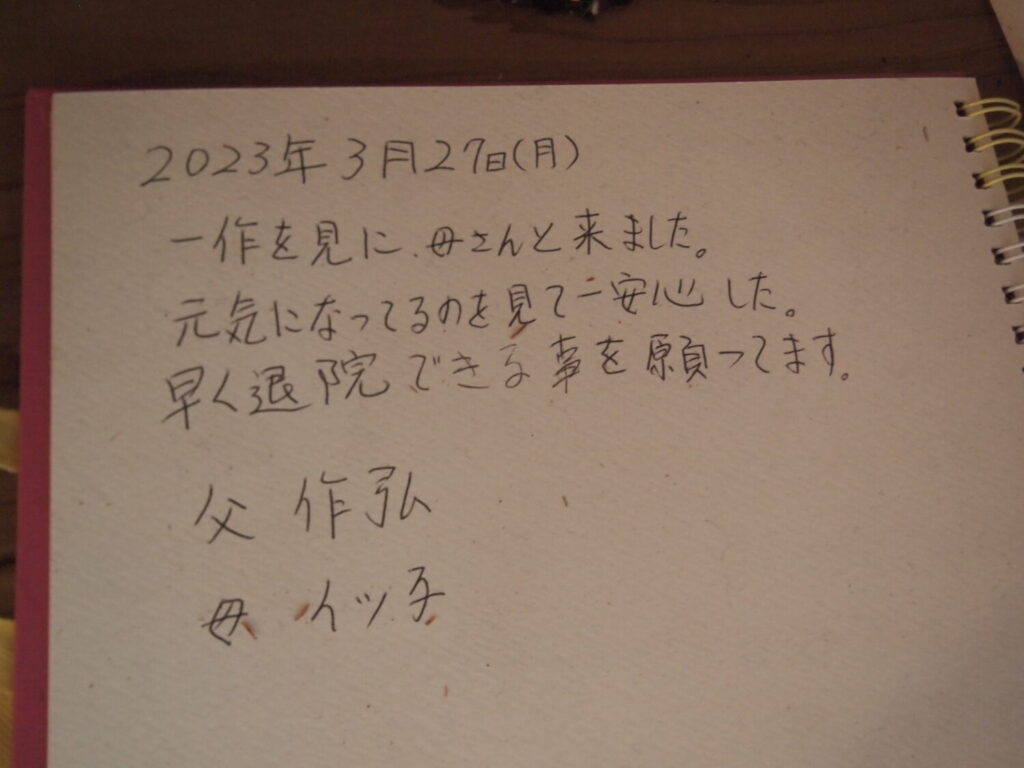 2023年3月27日(月)
一作を見に、母さんと来ました。
元気になってるのを見て一安心した。
早く退院できる事を願ってます。
父 作弘
母 イツ子